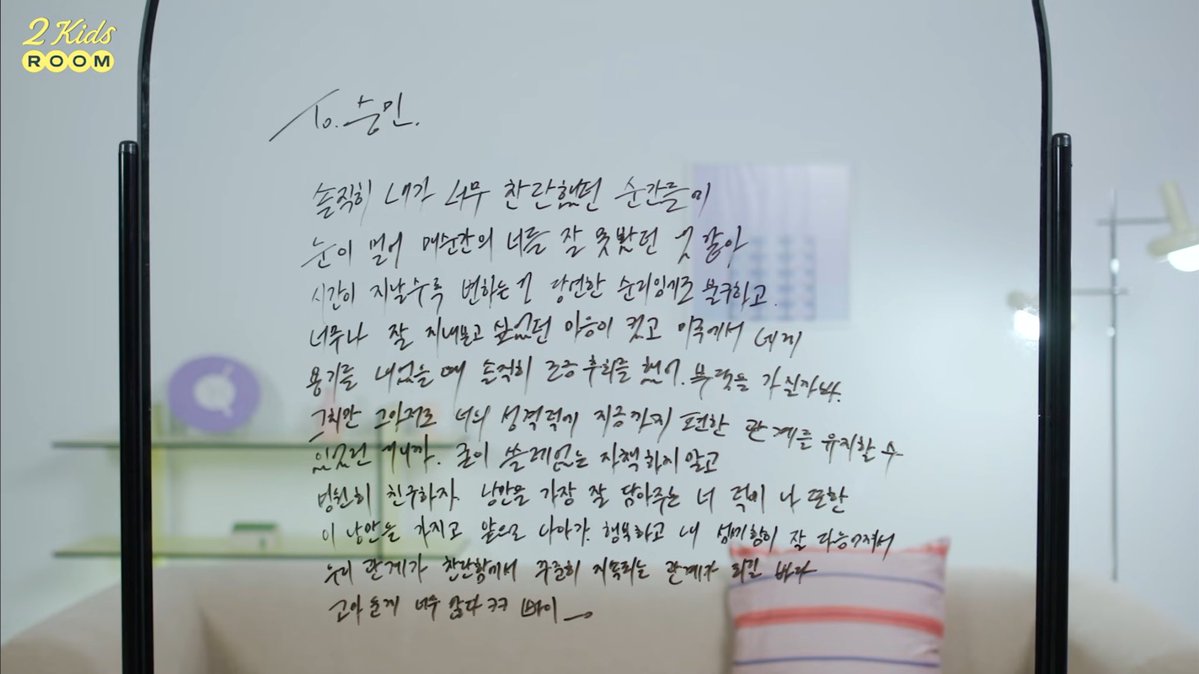 2 Kids
ROOM
To. 승민.
솔직히 내가 너무 찬란했던 순간들이
눈이 멀어 매순간의 너를 잘 못봤던 것 같아
시간이 지날수록 변하는 건 당연한 순리임에도 불구하고.
너무나 잘 지내보고 싶었던 마음이 컸고 미국에서 네게
용기를 내었을 때 솔직히 조금 후회를 했어.
그치만 그마저도 너의 성격덕에 지금까지 편한 관계를 유지할 수
있었던 거니까. 굳이 쓸데없는 자책하지말고
영원히 친구하자. 낭만을 가장 잘 담아주는 너 덕에 나 또한
이 낭만을 가지고 앞으로 나아가 행복하고 네 잘
우리 관계가 찬란함에서 꾸준히 지속되는 관계가 되길 바라
고마운게 너무 많다 ㅋㅋ 빠이